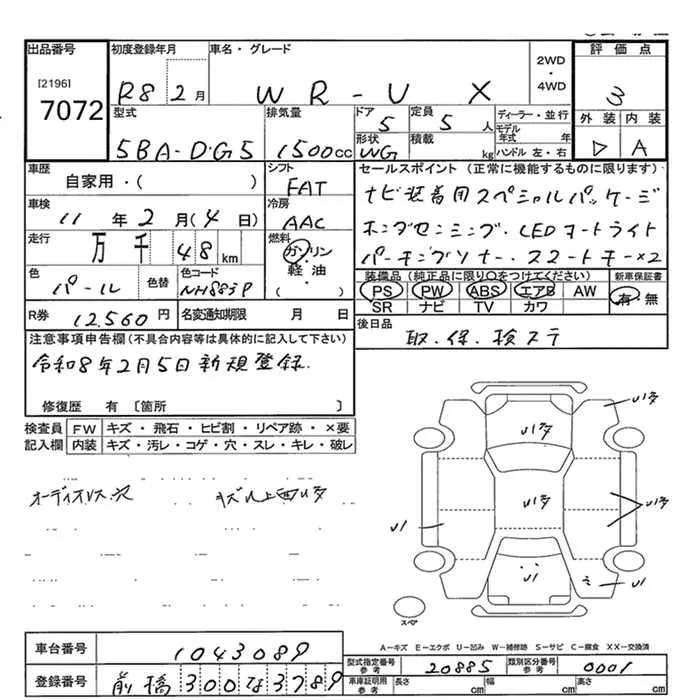 出品番号
[2196]
7072
初度登録年月
R8 2月
車名・グレード
WR-V X
2WD
・
4WD
評価点
3
外装 内装
A
型式
5BA-DG5
排気量
1500cc
ドア
5
定員
5人
形状
WG
積載
kg
ディーラー・並行
モデル年式 年
ハンドル 左・右
車歴
自家用・( )
シフト
FAT
車検
11年2月(4日)
冷房
AAC
走行
万千48km
燃料
ガソリン
・
軽油
( )
色
パール
色替
色コード
NH883P
R券
12,560円
名変通知期限 月 日
セールスポイント (正常に機能するものに限ります)
ナビ装着用スペシャルパッケージ
ホンダセンシング・LEDオートライト
パーキングソナー・スマートキー×2
装備品(純正品に限り○をつけてください)
新車保証書
PS PW ABS エアB AW
SR ナビ TV カワ
有・無
後日品
取.保.検ステ
注意事項申告欄(不具合内容等は具体的に記入して下さい)
令和8年2月5日新規登録.
修復歴 有 〔箇所 〕
検査員記入欄
FW キズ・飛石・ヒビ割・リペア跡・×要
内装 キズ・汚レ・コゲ・穴・スレ・キレ・破レ
オーディオレス
U1多
U1多
U1多
U1多
U1
U1
U1
スペア
A-キズ E-エクボ U-凹み W-補修跡 S-サビ C-腐食 XX-交換済
車台番号
1043089
登録番号
前橋300な3789
型式指定番号
参考
20885
類別区分番号
参考
0001
車庫証明用
参考
長さ cm 幅 cm 高さ cm